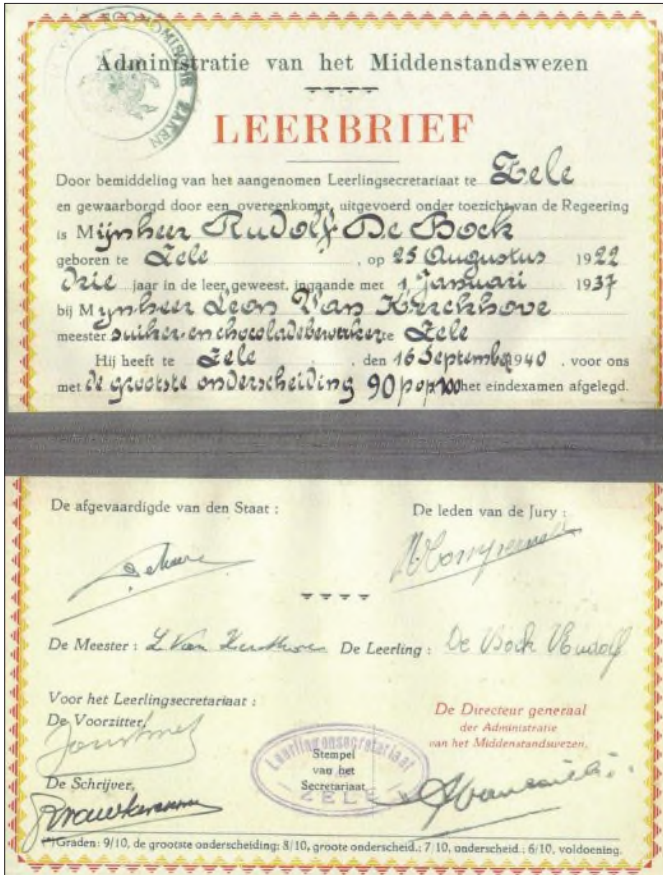 ECONOMISCHE ZAKEN
Administratie van het Middenstandswezen
LEERBRIEF
Door bemiddeling van het aangenomen Leerlingsecretariaat te Zele
en gewaarborgd door een overeenkomst, uitgevoerd onder toezicht van de Regeering
is Mijnheer Rudolf De Bock
geboren te Zele , op 25 Augustus 1922
drie jaar in de leer geweest, ingaande met 1 Januari 1937
bij Mijnheer Léon Van Kerckhove
meester suiker- en chocoladebewerker te Zele
Hij heeft te Zele , den 16 September 1940 , voor ons
met de grootste onderscheiding 90 p op 100 het eindexamen afgelegd.
De afgevaardigde van den Staat :
De leden van de Jury :
De Meester : L. Van Kerckhove De Leerling : De Bock Rudolf
Voor het Leerlingsecretariaat :
De Voorzitter,
De Directeur generaal
der Administratie
van het Middenstandswezen,
Leerlingensecretariaat
ZELE
Stempel
van het
Secretariaat
De Schrijver,
(*)Graden: 9/10, de grootste onderscheiding: 8/10, groote onderscheid.; 7/10, onderscheid.; 6/10, voldoening.